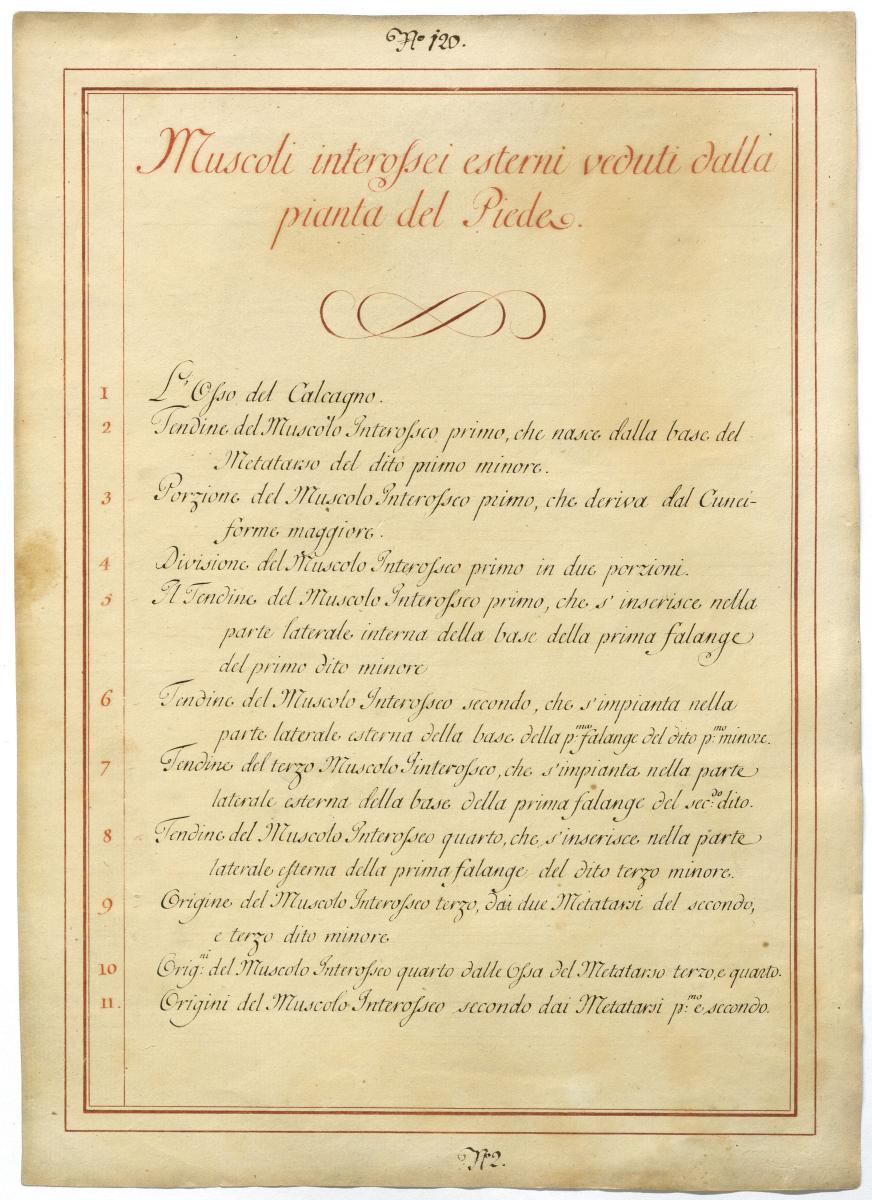 Nº 120.
Muscoli interossei esterni veduti dalla
pianta del Piede.
1 L'Osso del Calcagno.
2 Tendine del Muscolo Interosseo primo, che nasce dalla base del
Metatarso del dito primo minore.
3 Porzione del Muscolo Interosseo primo, che deriva dal Cunei-
forme maggiore.
4 Divisione del Muscolo Interosseo primo in due porzioni.
5 Il Tendine del Muscolo Interosseo primo, che s'inserisce nella
parte laterale interna della base della prima falange
del primo dito minore
6 Tendine del Muscolo Interosseo secondo, che s'impianta nella
parte laterale esterna della base della p.ma falange del dito p.mo minore.
7 Tendine del terzo Muscolo Iinterosseo, che s'impianta nella parte
laterale esterna della base della prima falange del sec.do dito.
8 Tendine del Muscolo Interosseo quarto, che s'inserisce nella parte
laterale esterna della prima falange del dito terzo minore.
9 Origine del Muscolo Interosseo terzo, dai due Metatarsi del secondo,
e terzo dito minore
10 Orig.ni del Muscolo Interosseo quarto dalle Ossa del Metatarso terzo, e quarto.
11. Origini del Muscolo Interosseo secondo dai Metatarsi p.mo e secondo.
Nº 2.